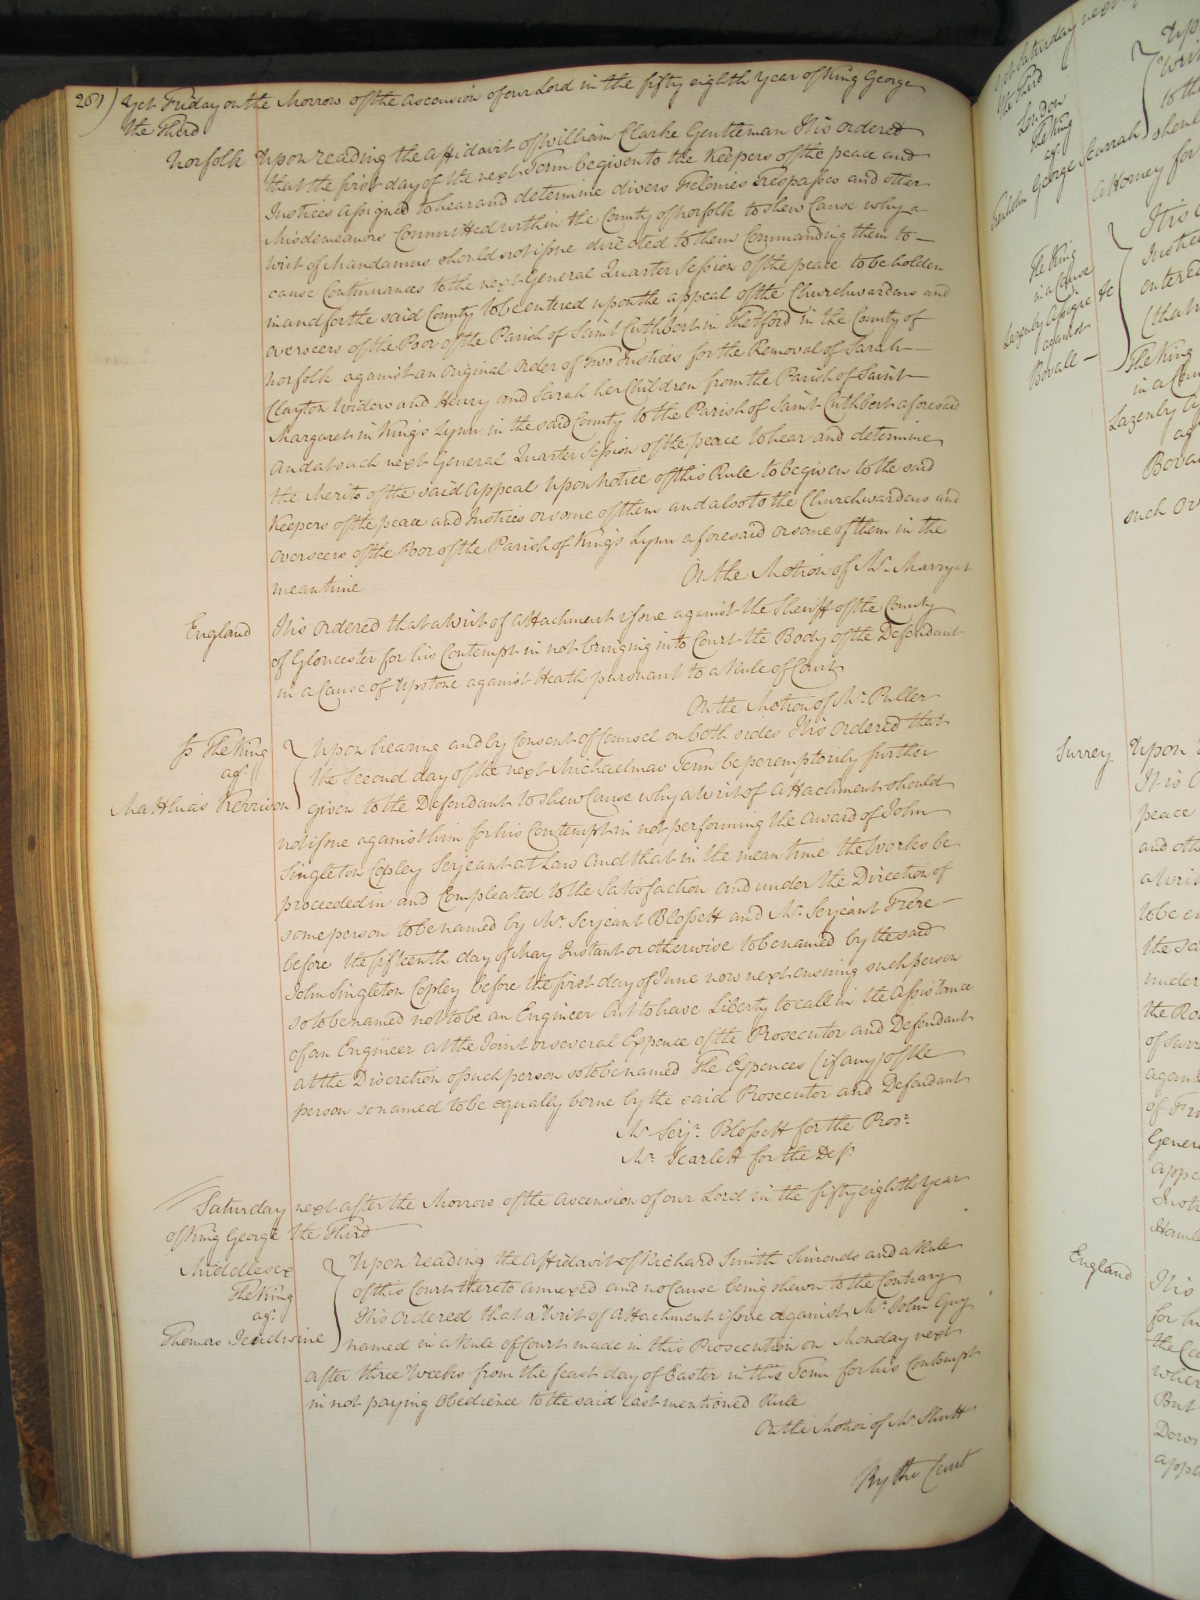 261) Yet Friday on the Morrow of the Ascension of our Lord in the fifty eighth Year of King George
the Third
Norfolk Upon reading the Affidavit of William Clarke Gentleman It is ordered
that the first day of the next Term be given to the Keepers of the peace and
Justices Assigned to hear and determine divers Felonies Trespasses and other
Misdemeanors Committed within the County of Norfolk to shew Cause why a
Writ of Mandamus should not issue directed to them Commanding them to —
cause Continuances to the next General Quarter Session of the peace to be holden
in and for the said County to be entered upon the appeal of the Churchwardens and
overseers of the Poor of the Parish of Saint Cuthbert in Thetford in the County of
Norfolk against an Original Order of Two Justices for the Removal of Sarah —
Clayton Widow and Henry and Sarah her Children from the Parish of Saint
Margaret in Kings Lynn in the said County to the Parish of Saint Cuthbert aforesaid
And at such next General Quarter Session of the peace to hear and determine
the Merits of the said Appeal upon Notice of this Rule to be given to the said
Keepers of the peace and Justices or some of them and also to the Churchwardens and
overseers of the Poor of the Parish of Kings Lynn aforesaid or some of them in the
meantime
On the Motion of Mr. Marryat
England It is ordered that a Writ of Attachment issue against the Sheriff of the County
of Gloucester for his Contempt in not bringing into Court the Body of the Defendant
in a Cause of Upstone against Heath pursuant to a Rule of Court
On the Motion of Mr. Puller
The King
agt.
Matthias Kerrison
Upon hearing and by Consent of Counsel on both sides It is Ordered that
the Second day of the next Michaelmas Term be peremptorily further
given to the Defendant to shew Cause why a Writ of Attachment should
not issue against him for his Contempt in not performing the Award of John
Singleton Copley Serjeant at Law And that in the mean time the Works be
proceeded in and Compleated to the Satisfaction and under the Direction of
some person to be named by Mr. Serjeant Blossett and Mr. Serjeant Frere —
before the fifteenth day of May Instant or otherwise to be named by the said
John Singleton Copley before the first day of June now next ensuing such person
so to be named not to be an Engineer but to have Liberty to call in the Assistance
of an Engineer at the Joint or several Expence of the Prosecutor and Defendant
at the Discretion of such person so to be named The Expences (if any) of the
person so named to be equally borne by the said Prosecutor and Defendant
Mr. Serjt. Blossett for the Prosr.
Mr. Scarlett for the Deft.
Saturday next after the Morrow of the Ascension of our Lord in the fifty eighth Year
of King George the Third
Middlesex
The King
agt.
Thomas
Upon reading the Affidavit of Richard Smith Simonds and a Rule
of this Court thereto annexed and no Cause being shewn to the Contrary
It is Ordered that a Writ of Attachment issue against Mr. John Guy
named in a Rule of Court made in this Prosecution on Monday next
after three Weeks from the feast day of Easter in this Term for his Contempt
in not paying Obedience to the said last mentioned Rule
On the Motion of Mr. Shutt
By the Court
Yet Saturday next
the Third
London
The King
agt.
George Scurrah
Up
Writ
to the
should
Attorney for
The King
in a Cause
Lazenby Assignee &c
against
Bovall —
It is
Justice
entered
(that
The King
in a Cau
Lazenby As
ag
Bova
such or
Surrey Upon
It is O
peace
and oth
a Writ
to be en
the sai
under
the Ro
of Surr
against
of
Gener
appe
Just
England It is
for hi
the Co
wher
But
Dow
appe